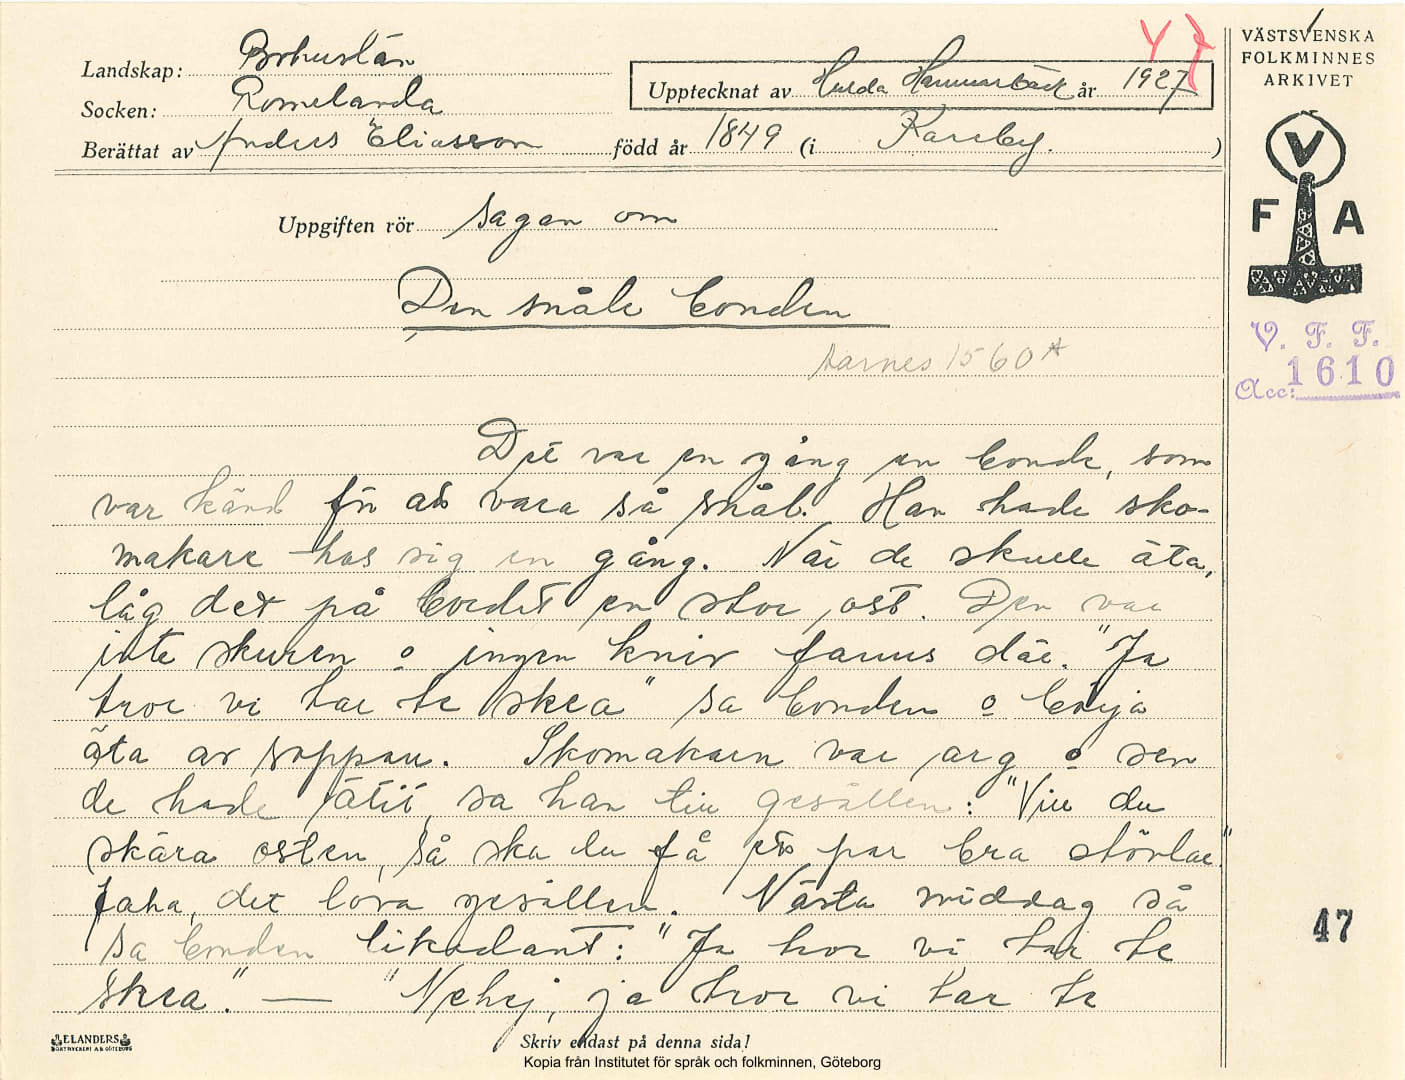 Landskap: Bohuslän
Socken: Romelanda
Berättat av Anders Eliasson
Upptecknat av Hulda Hammarbäck år 1927
född år 1849 (i Kareby.)
VÄSTSVENSKA
FOLKMINNES
ARKIVET
V
F A
Uppgiften rör sagan om
Den snåle bonden
Aarnes 1560*
V. F. F.
Acc: 1610
Det var en gång en bonde, som
var känd för att vara så snål. Han hade sko-
makare hos sig en gång. När de skulle äta,
låg det på bordet en stor ost. Den var
inte skuren o ingen kniv fanns där. "Ja
tror vi tar te skea" sa bonden o börja
äta av soppan. Skomakarn var arg o sen
de hade ätit, sa han till gesällen: "Vill du
skära osten, så ska du få ett par bra stövlar."
Jaha, det lova gesällen. Nästa middag så
sa bonden likadant: "Ja tror vi tar te
skea." — "Nehej, ja tror vi tar te
47
ELANDERS
BOKTRYCKERI A.B. GÖTEBORG
Skriv endast på denna sida!
Kopia från Institutet för språk och folkminnen, Göteborg